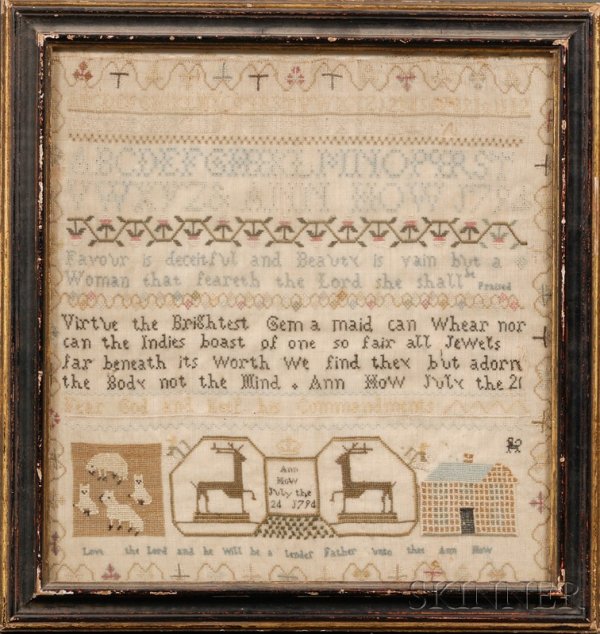 ABCDEFGHIKLMNOPQRST
VWXYZ& ANN HOW 1794
Favour is deceitful and Beauty is vain but a
Woman that feareth the Lord she shall be Praised
Virtue the Brightest Gem a maid can Whear nor
can the Indies boast of one so fair all Jewels
far beneath its Worth We find they but adorn
the Body not the Mind . Ann How July the 21
Fear God and keep his Commandments
Ann
How
July the
24 1794
Love the Lord and he Will be a tender Father unto thee Ann How
SKINNER